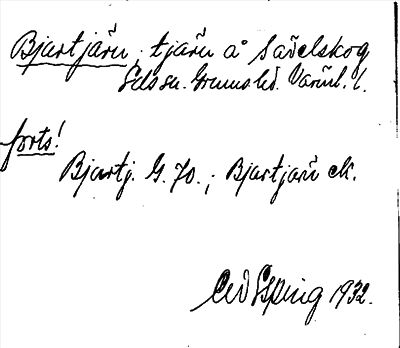 Bjartjärn, tjärn å Sadelskog
Eds sn. Grums hd. Värml. l.
forts!
Bjartj. G. 70. ; Bjartjärn ek.
1932.